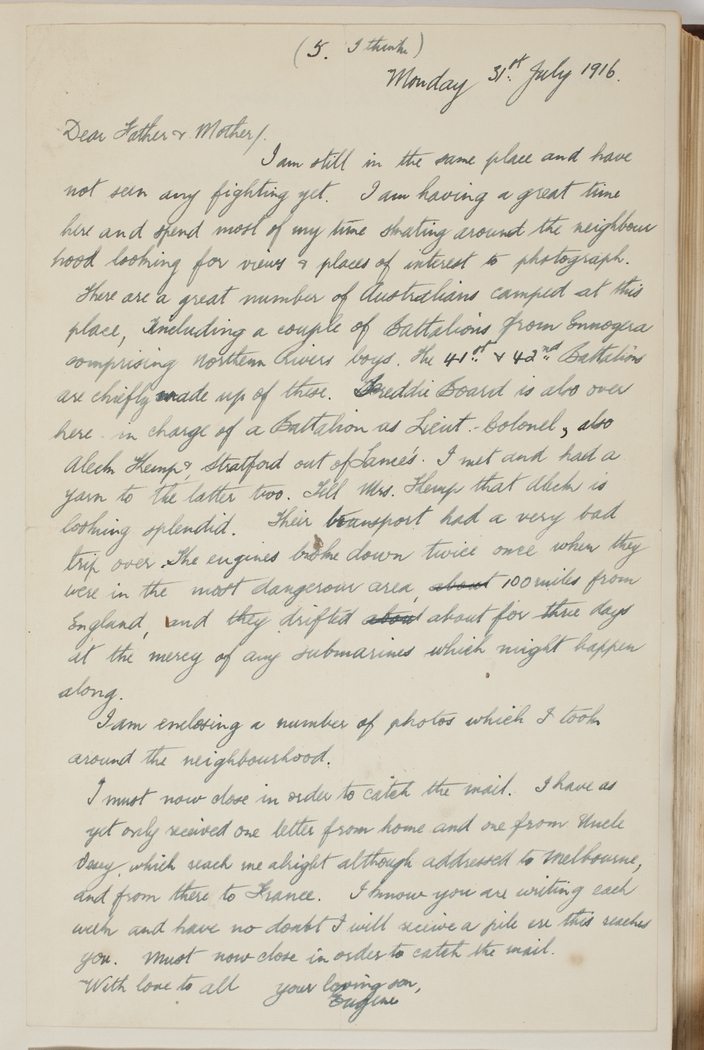 (5. I think)
Monday 31st July 1916.
Dear Father & Mother/.
I am still in the same place and have
not seen any fighting yet. I am having a great time
here and spend most of my time skating around the neighbour
hood looking for views & places of interest to photograph.
There are a great number of Australians camped at this
place, Including a couple of Battalions from Ennogera
comprising Northern Rivers boys. The 41st & 42nd Battalions
are chiefly made up of these. Freddie Board is also over
here in charge of a Battalion as Lieut.-Colonel, also
Alech Kemp & Stratford out of Lance's. I met and had a
yarn to the latter two. Tell Mrs. Kemp that Alech is
looking splendid. Their transport had a very bad
trip over. The engines broke down twice once when they
were in the most dangerous area, about 100 miles from
England, and they drifted about about for three days
at the mercy of any submarines which might happen
along.
I am enclosing a number of photos which I took
around the neighbourhood.
I must now close in order to catch the mail. I have as
yet only received one letter from home and one from Uncle
which reach me alright although addressed to Melbourne,
and from there to France. I know you are writing each
week and have no doubt I will receive a pile ere this reaches
you. Must now close in order to catch the mail.
With love to all your loving son,
Eugene